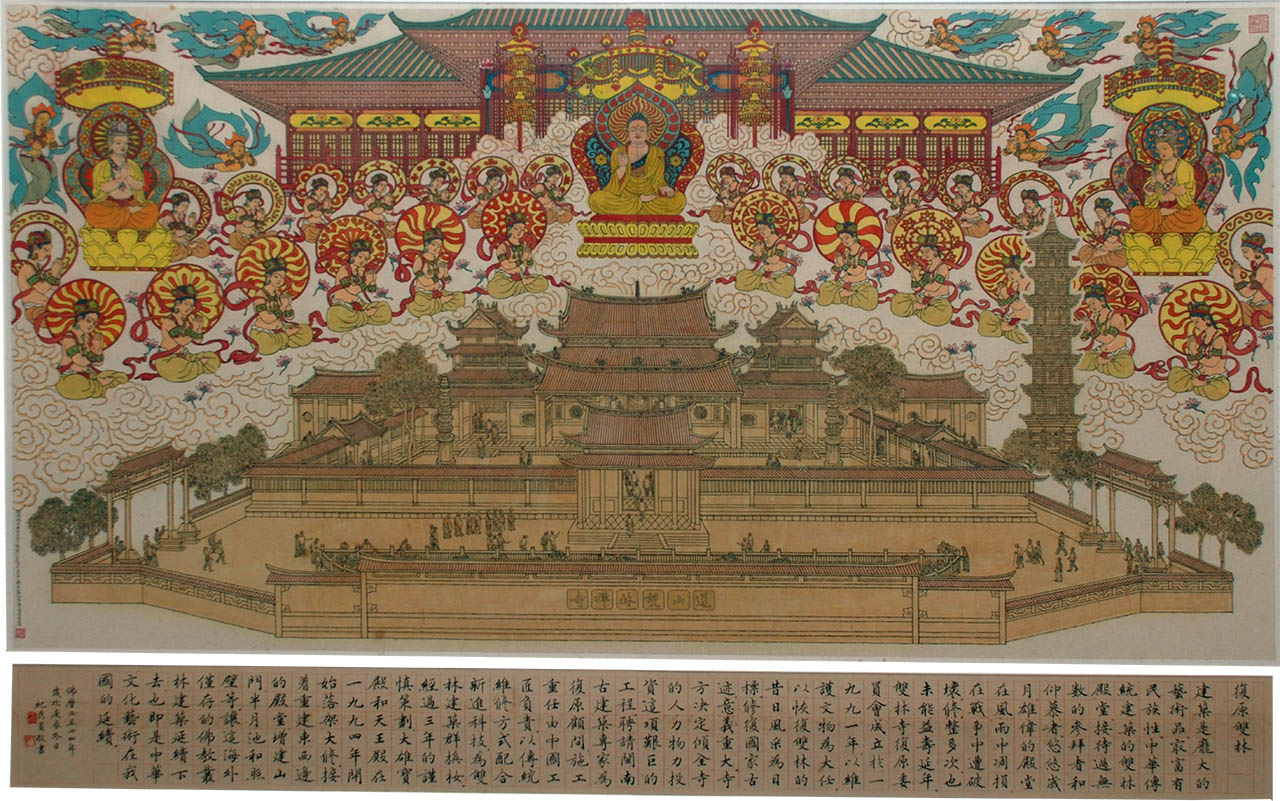 蓮山雙林禪寺
復原雙林
建築是龐大的
藝術品最富有
民族性中華傳
統建築的雙林
殿堂接待過無
數的參拜者和
仰慕者悠悠歲
月雄偉的殿堂
在風雨中凋損
在戰爭中遭破
壞修整多次也
未能益壽延年
雙林寺復原委
員會成立於一
九九一年以維
護文物為大任
以恢復雙林的
昔日風采為目
標修復國家古
迹意義重大寺
方決定傾全寺
的人力物力投
資這項艱巨的
工程聘請閩南
古建築專家為
復原顧問施工
重任由中國工
匠負責以傳統
維修方式配合
新進科技為雙
林建築群換妝
經過三年的謹
慎策劃大雄寶
殿和天王殿在
一九九四年開
始落架大修接
着重建東西邊
的殿堂增建山
門半月池和照
壁等讓這海外
僅存的佛教叢
林建築延續下
去也即是中華
文化藝術在我
國的延續
佛曆二五四四年
歲次庚辰冬日
敬書